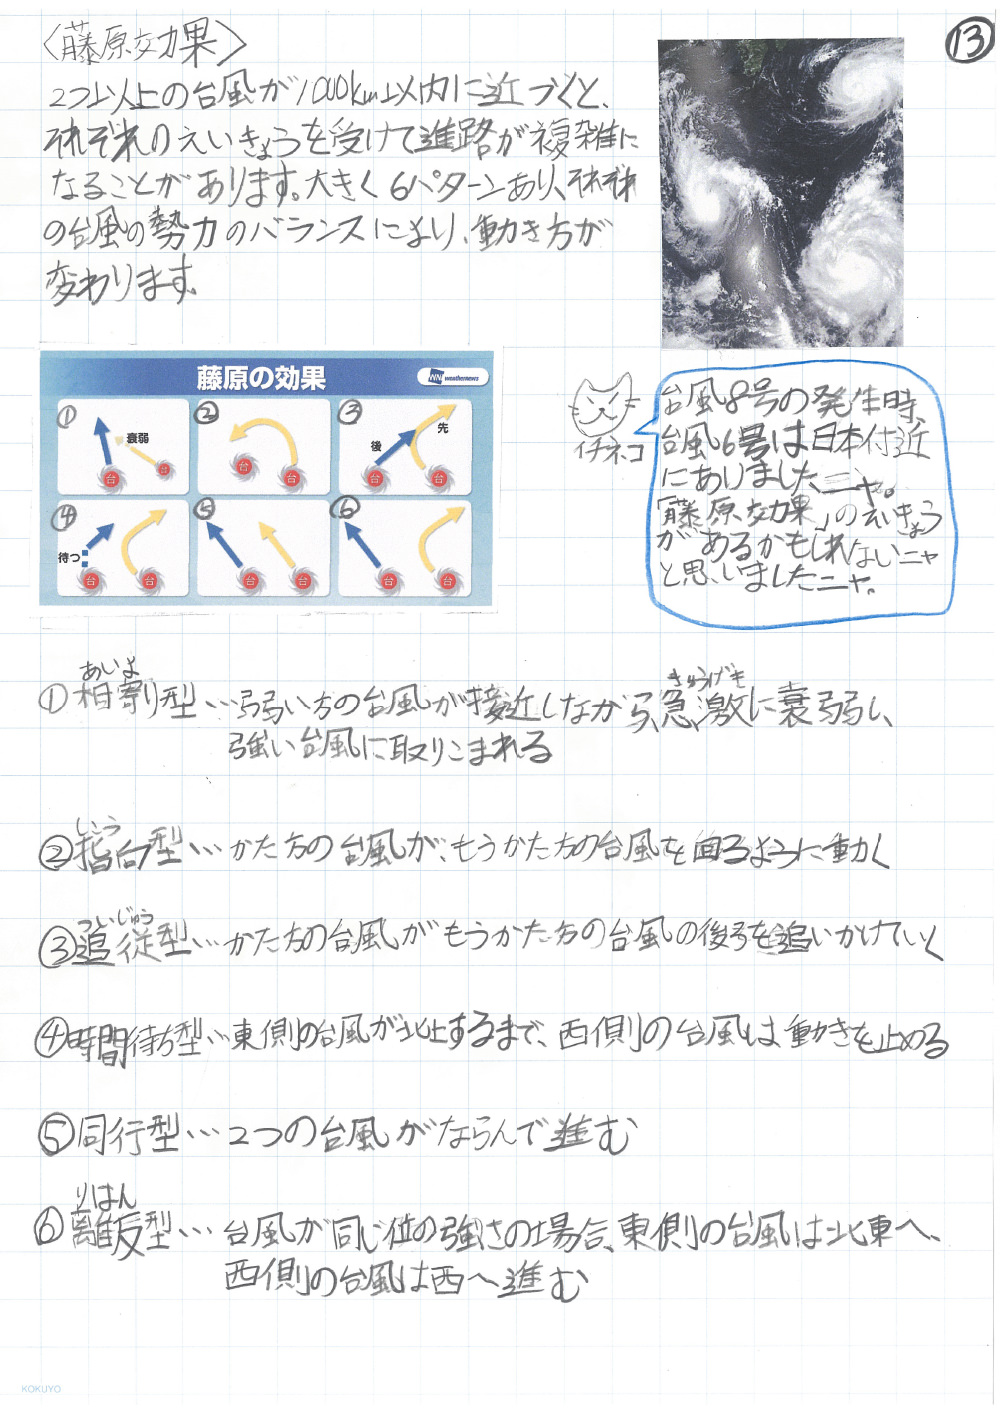 ⑬
〈藤原効果〉
2つ以上の台風が1000km以内に近づくと、
それぞれのえいきょうを受けて進路が複雑に
なることがあります。大きく6パターンあり、それぞれ
の台風の勢力のバランスにより、動き方が
変わります。
藤原の効果
WN weathernews
①
衰弱
台
台
②
台
台
③
後
先
台
台
④
待つ
台
台
⑤
台
台
⑥
台
台
イチネコ
台風8号の発生時、
台風6号は日本付近
にありましたニャ。
「藤原効果」のえいきょう
があるかもしれないニャ
と思いましたニャ。
あいよ
きゅうげき
①相寄り型…弱い方の台風が接近しながら、急激に衰弱し、
強い台風に取りこまれる
しこう
②指向型…かた方の台風が、もうかた方の台風を回るように動く
ついじゅう
③追従型…かた方の台風がもうかた方の台風の後ろを追いかけていく
④時間待ち型…東側の台風が北上するまで、西側の台風は動きを止める
⑤同行型…2つの台風がならんで進む
りはん
⑥離反型…台風が同じ位の強さの場合、東側の台風は北東へ、
西側の台風は西へ進む
KOKUYO